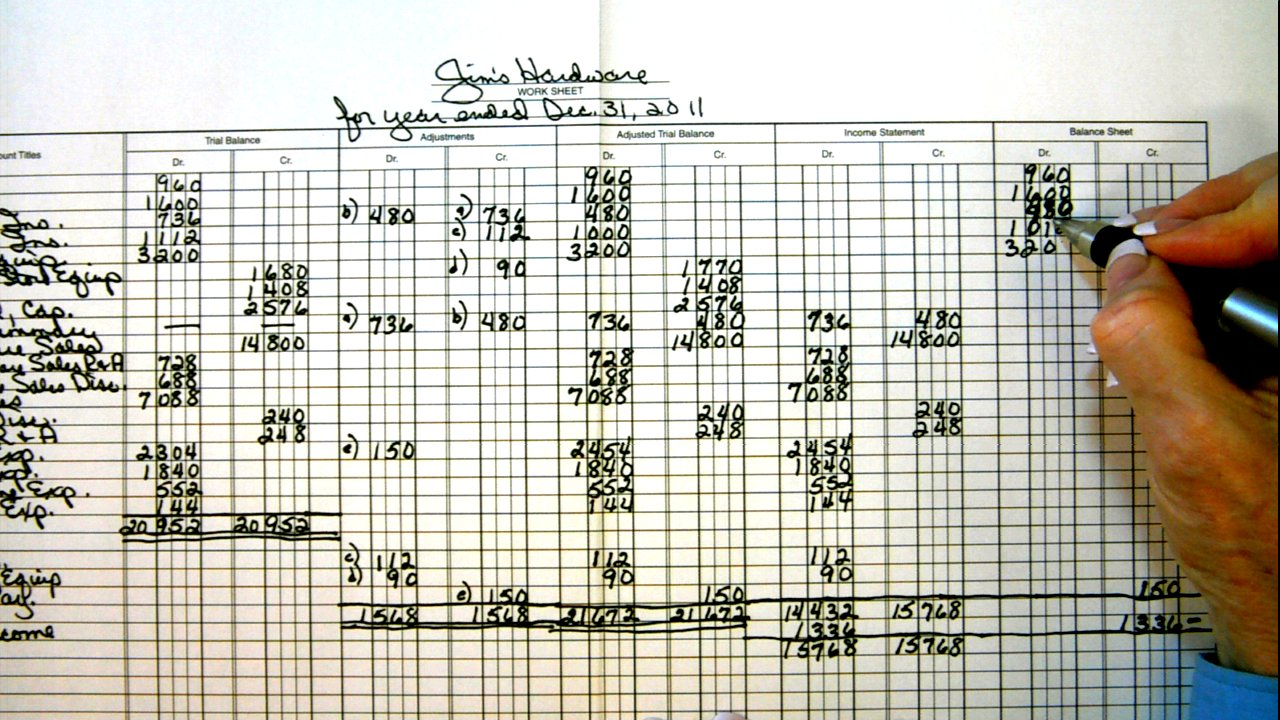 Jim's Hardware
WORK SHEET
for year ended Dec. 31, 2011
unt Titles Trial Balance Adjustments Adjusted Trial Balance Income Statement Balance Sheet
Dr. Cr. Dr. Cr. Dr. Cr. Dr. Cr. Dr. Cr.
960 960 960
1600 1600 1600
Ins. 736 b) 480 a) 736 480 480
Ins. 1112 c) 112 1000
Equip. 3200 3200 320
Store Equip 1680 d) 90 1770
1408 1408
, Cap. 2576 2576
— — a) 736 b) 480 736 480 736 480
Sales 14800 14800 14800
Sales R&A 728 728 728
Sales Disc. 688 688 688
es 7088 7088 7088
Disc. 240 240 240
R & A 248 248 248
xp. 2304 e) 150 2454 2454
xp. 1840 1840 1840
Exp. 552 552 552
Exp. 144 144 144
20952 20952
c) 112 112 112
Equip d) 90 90 90
Pay. e) 150 150 150
1568 1568 21672 21672 14432 15768
come 1336 1336
15768 15768